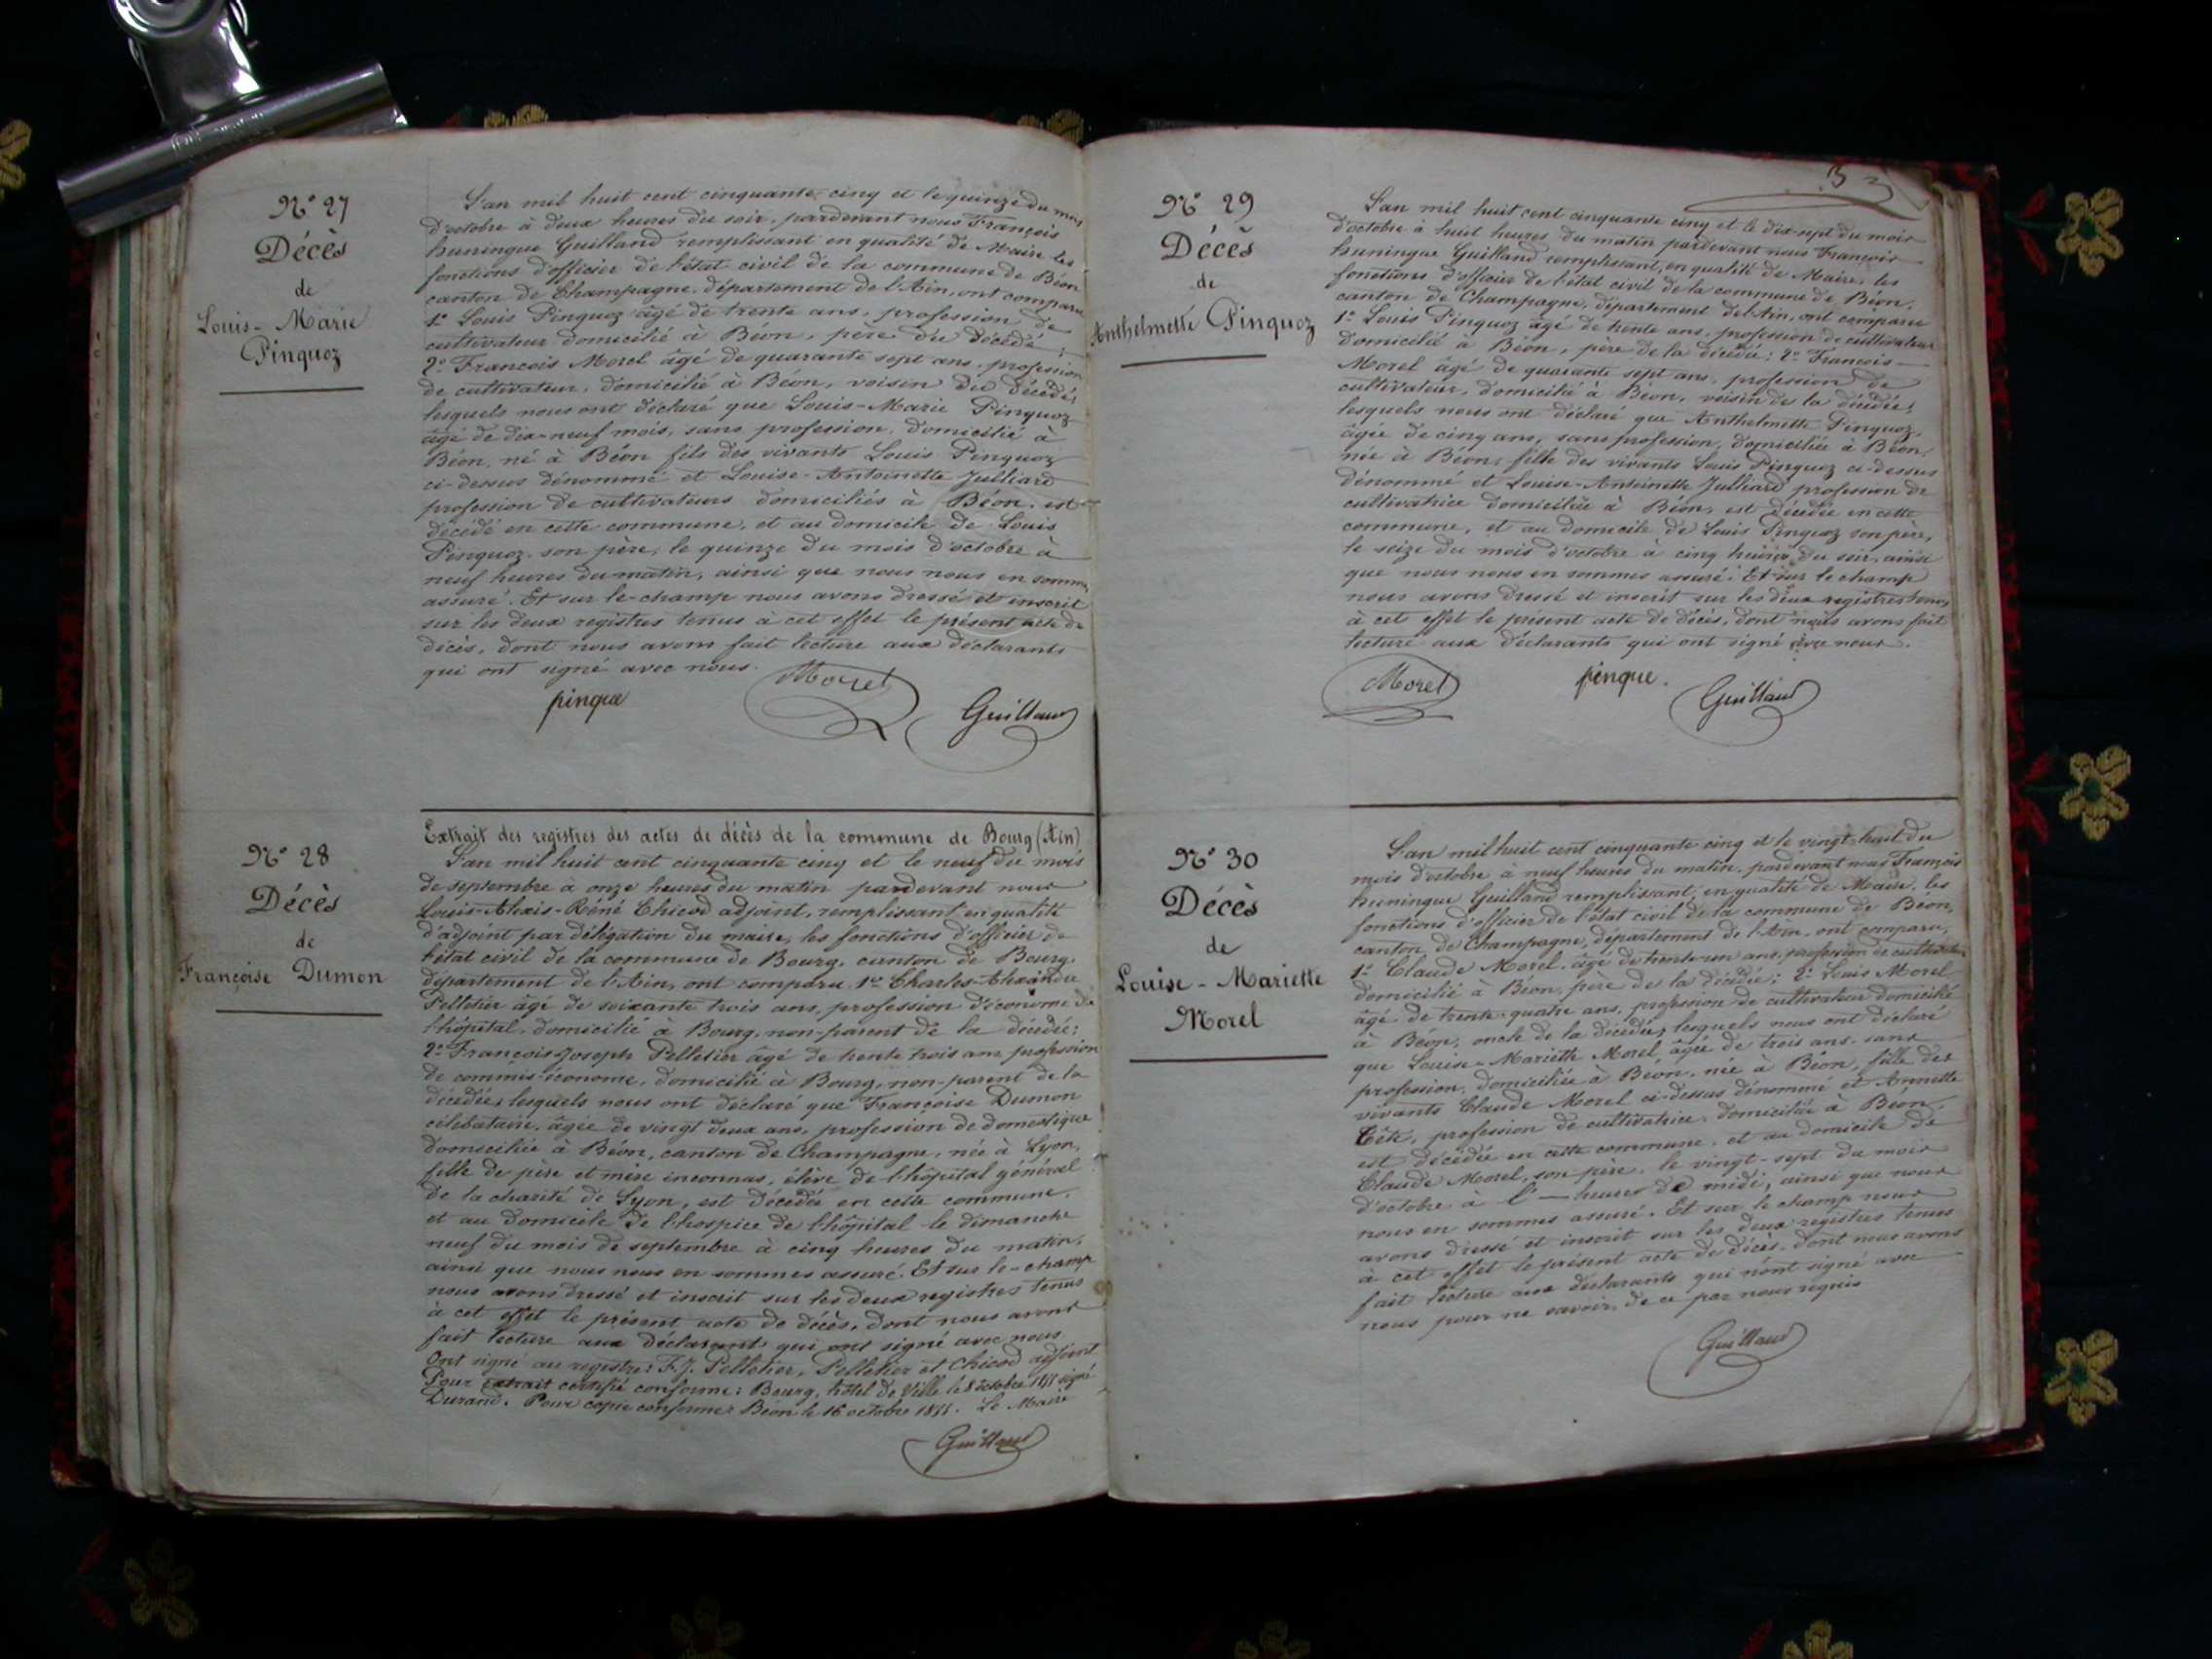 N° 27
Décès
de
Louis-Marie
Pinquoz
L'an mil huit cent cinquante-cinq et le quinze du mois
d'octobre à deux heures du soir, pardevant nous François
huningue Guilland remplissant en qualité de Maire les
fonctions d'officier de l'état civil de la commune de Béon
canton de Champagne, département de l'Ain, ont comparu
1° Louis Pinquoz âgé de trente ans, profession de
cultivateur domicilié à Béon, père du décédé;
2° François Morel âgé de quarante sept ans, profession
de cultivateur, domicilié à Béon, voisin du décédé,
lesquels nous ont déclaré que Louis-Marie Pinquoz
âgé de dix-neuf mois, sans profession, domicilié à
Béon, né à Béon fils des vivants Louis Pinquoz
ci-dessus dénommé et Louise-Antoinette Julliard
profession de cultivateurs domiciliés à Béon, est
décédé en cette commune, et au domicile de Louis
Pinquoz son père, le quinze du mois d'octobre à
neuf heures du matin, ainsi que nous nous en sommes
assuré. Et sur le-champ nous avons dressé et inscrit
sur les deux registres tenus à cet effet le présent acte de
décès, dont nous avons fait lecture aux déclarants
qui ont signé avec nous.
Morel
pinque
Guilland
N° 28
Décès
de
Françoise Dumon
Extrait des registres des actes de décès de la commune de Bourg (Ain)
L'an mil huit cent cinquante cinq et le neuf du mois
de septembre à onze heures du matin pardevant nous
Louis-Alexis-Réné Chicod adjoint, remplissant en qualité
d'adjoint par délégation du maire, les fonctions d'officier de
l'état civil de la commune de Bourg, canton de Bourg,
département de l'Ain, ont comparu 1° Charles-Alexandre
Pelletier âgé de soixante trois ans, profession d'économe de
l'hôpital, domicilié à Bourg, non-parent de la décédée;
2° François Joseph Pelletier âgé de trente trois ans profession
de commis-économe, domicilié à Bourg, non-parent de la
décédée, lesquels nous ont déclaré que Françoise Dumon
célibataire, âgée de vingt deux ans, profession de domestique
domiciliée à Béon, canton de Champagne, née à Lyon,
fille de père et mère inconnus, élève de l'hôpital général
de la charité de Lyon, est décédée en cette commune,
et au domicile de l'hospice de l'hôpital le dimanche
neuf du mois de septembre à cinq heures du matin,
ainsi que nous nous en sommes assuré. Et sur le-champ
nous avons dressé et inscrit sur les deux registres tenus
à cet effet le présent acte de décès, dont nous avons
fait lecture aux déclarants qui ont signé avec nous
Ont signé au registre: F. J. Pelletier, Pelletier et Chicod adjoint
Pour extrait certifié conforme: Bourg, hôtel de Ville le 8 octobre 1855 signé
Durand. Pour copie conforme: Béon le 16 octobre 1855. Le Maire
Guilland
N° 29
Décès
de
Anthelmette Pinquoz
L'an mil huit cent cinquante cinq et le dix-sept du mois
d'octobre à huit heures du matin pardevant nous François
huningue Guilland remplissant, en qualité de Maire, les
fonctions d'officier de l'état civil de la commune de Béon,
canton de Champagne, département de l'Ain, ont comparu
1° Louis Pinquoz âgé de trente ans, profession de cultivateur
domicilié à Béon, père de la décédée; 2° François
Morel âgé de quarante sept ans, profession de
cultivateur, domicilié à Béon, voisin de la décédée,
lesquels nous ont déclaré que Anthelmette Pinquoz,
âgée de cinq ans, sans profession, domiciliée à Béon,
née à Béon, fille des vivants Louis Pinquoz ci-dessus
dénommé et Louise-Antoinette Julliard profession de
cultivatrice domiciliée à Béon, est décédée en cette
commune, et au domicile de Louis Pinquoz son père,
le seize du mois d'octobre à cinq heures du soir, ainsi
que nous nous en sommes assuré. Et sur le champ
nous avons dressé et inscrit sur les deux registres tenus
à cet effet le présent acte de décès, dont nous avons fait
lecture aux déclarants qui ont signé avec nous.
Morel
pinque.
Guilland
N° 30
Décès
de
Louise-Mariette
Morel
L'an mil huit cent cinquante cinq et le vingt-huit du
mois d'octobre à neuf heures du matin, pardevant nous François
huningue Guilland remplissant, en qualité de Maire, les
fonctions d'officier de l'état civil de la commune de Béon,
canton de Champagne, département de l'Ain, ont comparu,
1° Claude Morel, âgé de trente-un ans, profession de cultivateur
domicilié à Béon, père de la décédée; 2° Louis Morel
âgé de trente-quatre ans, profession de cultivateur domicilié
à Béon, oncle de la décédée, lesquels nous ont déclaré
que Louise-Mariette Morel, âgée de trois ans, sans
profession, domiciliée à Béon, née à Béon, fille des
vivants Claude Morel ci-dessus dénommé et Annette
Tête, profession de cultivatrice, domiciliée à Béon,
est décédée en cette commune, et au domicile de
Claude Morel, son père, le vingt-sept du mois
d'octobre à l'— heures de midi, ainsi que nous
nous en sommes assuré. Et sur le champ nous
avons dressé et inscrit sur les deux registres tenus
à cet effet le présent acte de décès, dont nous avons
fait lecture aux déclarants qui n'ont signé avec
nous pour ne savoir, de ce par nous requis
Guilland